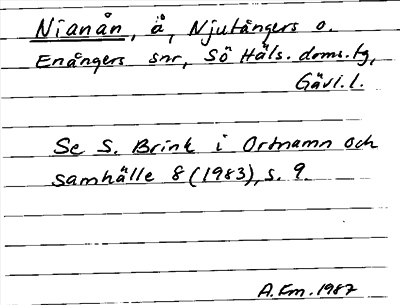 Nianån, å, Njutångers o.
Enångers snr, Sö Häls. doms.tg,
Gävl.l.
Se S. Brink i Ortnamn och
samhälle 8 (1983), s. 9.
A.Em. 1987